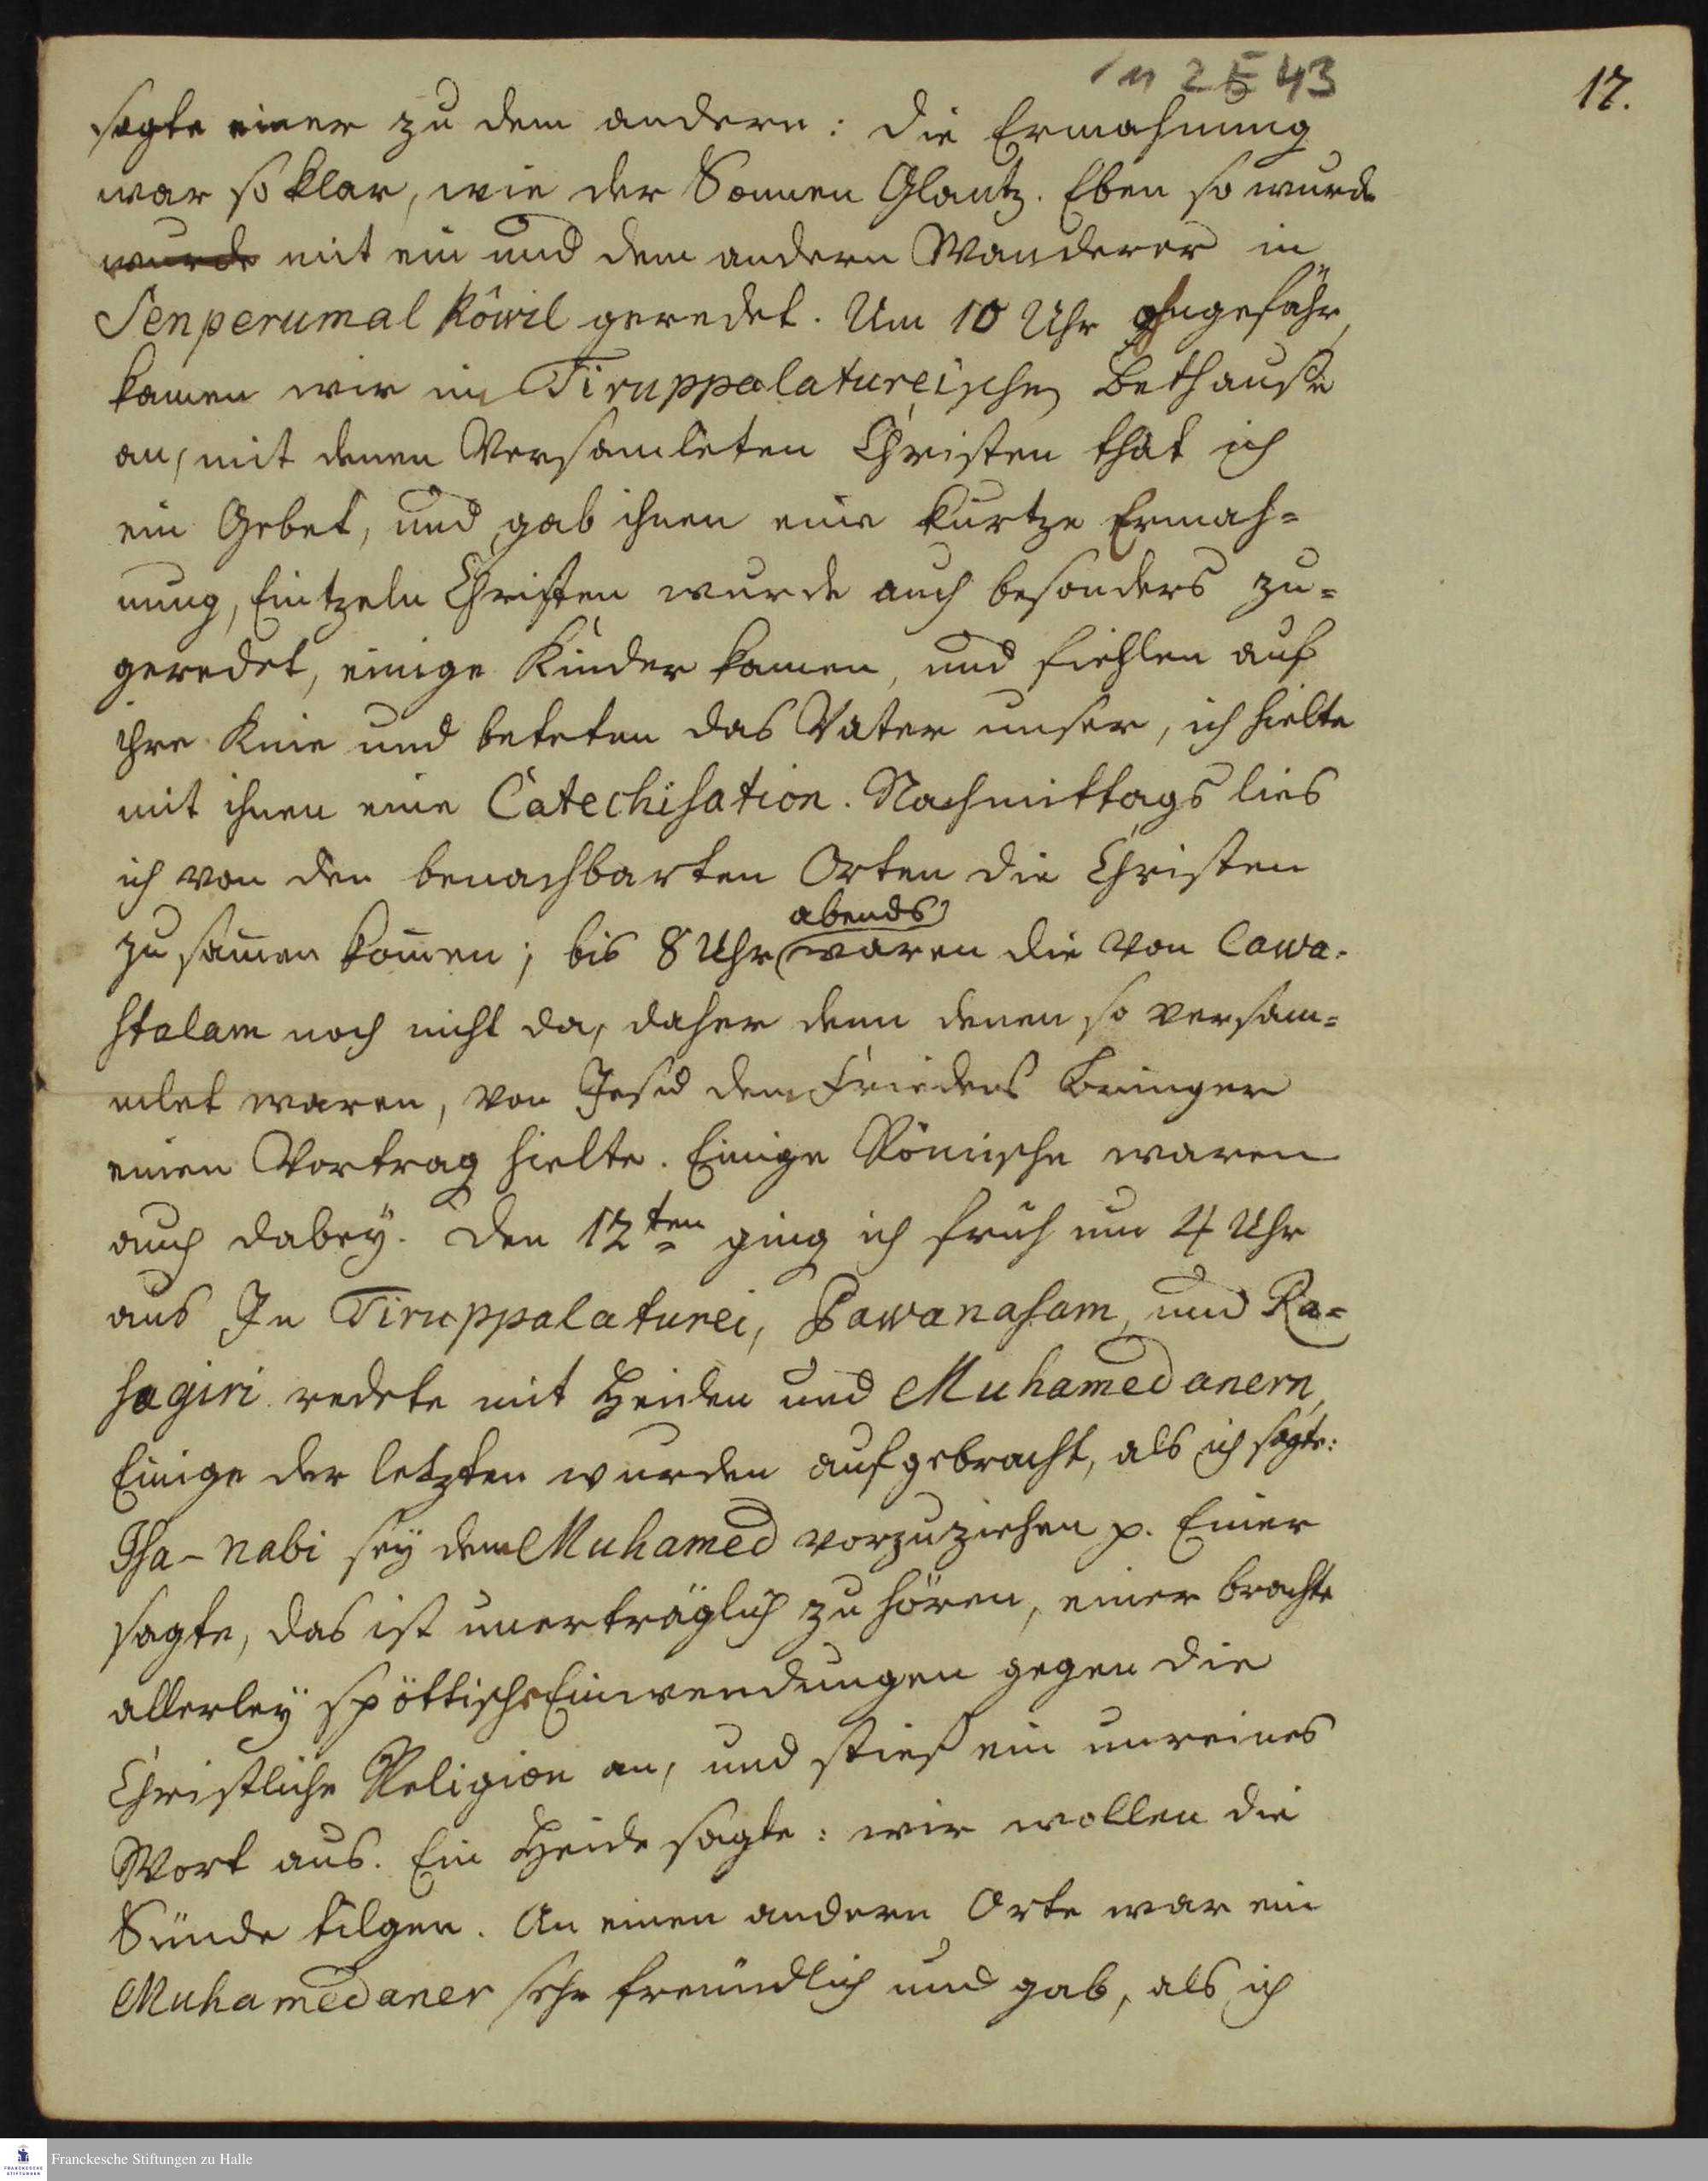 in 2 E 43
17.
sagte einer zu dem andern: die Ermahnung
war so klar, wie der Sonnen Glantz. Eben so wurde
wurde mit ein und dem andern Wanderer in
Senperumal Kôwil geredet. Um 10 Uhr ohngefähr,
kamen wir im Tiruppalatureischen Bethause
an, mit denen Versamleten Christen that ich
ein Gebet, und gab ihnen eine kurtze Ermah=
nung, Eintzeln Christen wurde auch besonders zu=
geredet, einige Kinder kamen, und fiehlen auf
ihre Knie und beteten das Vater unser, ich hielte
mit ihnen eine Catechisation. Nachmittags lies
ich von den benachbarten Orten die Christen
abends
zusam̄en kom̄en; bis 8 Uhr waren die von Cawa-
stalam noch nicht da, daher denn denen so versam=
mlet waren, von Jesu dem Friedens Bringer
einen Vortrag hielte. Einige Römische waren
auch dabeÿ. Den 12ten ging ich früh um 4 Uhr
aus In Tiruppalaturei, Pawanasam, und Ra=
sagiri redete mit Heiden und Muhamedanern,
Einige der letzten wurden aufgebracht, als ich sagte:
Isa-nabi seÿ dem Muhamed vorzuziehen p. Einer
sagte, das ist unerträglich zu hören, einer brachte
allerleÿ spöttische Einwendungen gegen die
Christliche Religion an, und stieß ein unreines
Wort aus. Ein Heide sagte: wir wollen die
Sünde tilgen. An einen andern Orte war ein
Muhamedaner sehr freundlich und gab, als ich
Franckesche Stiftungen zu Halle